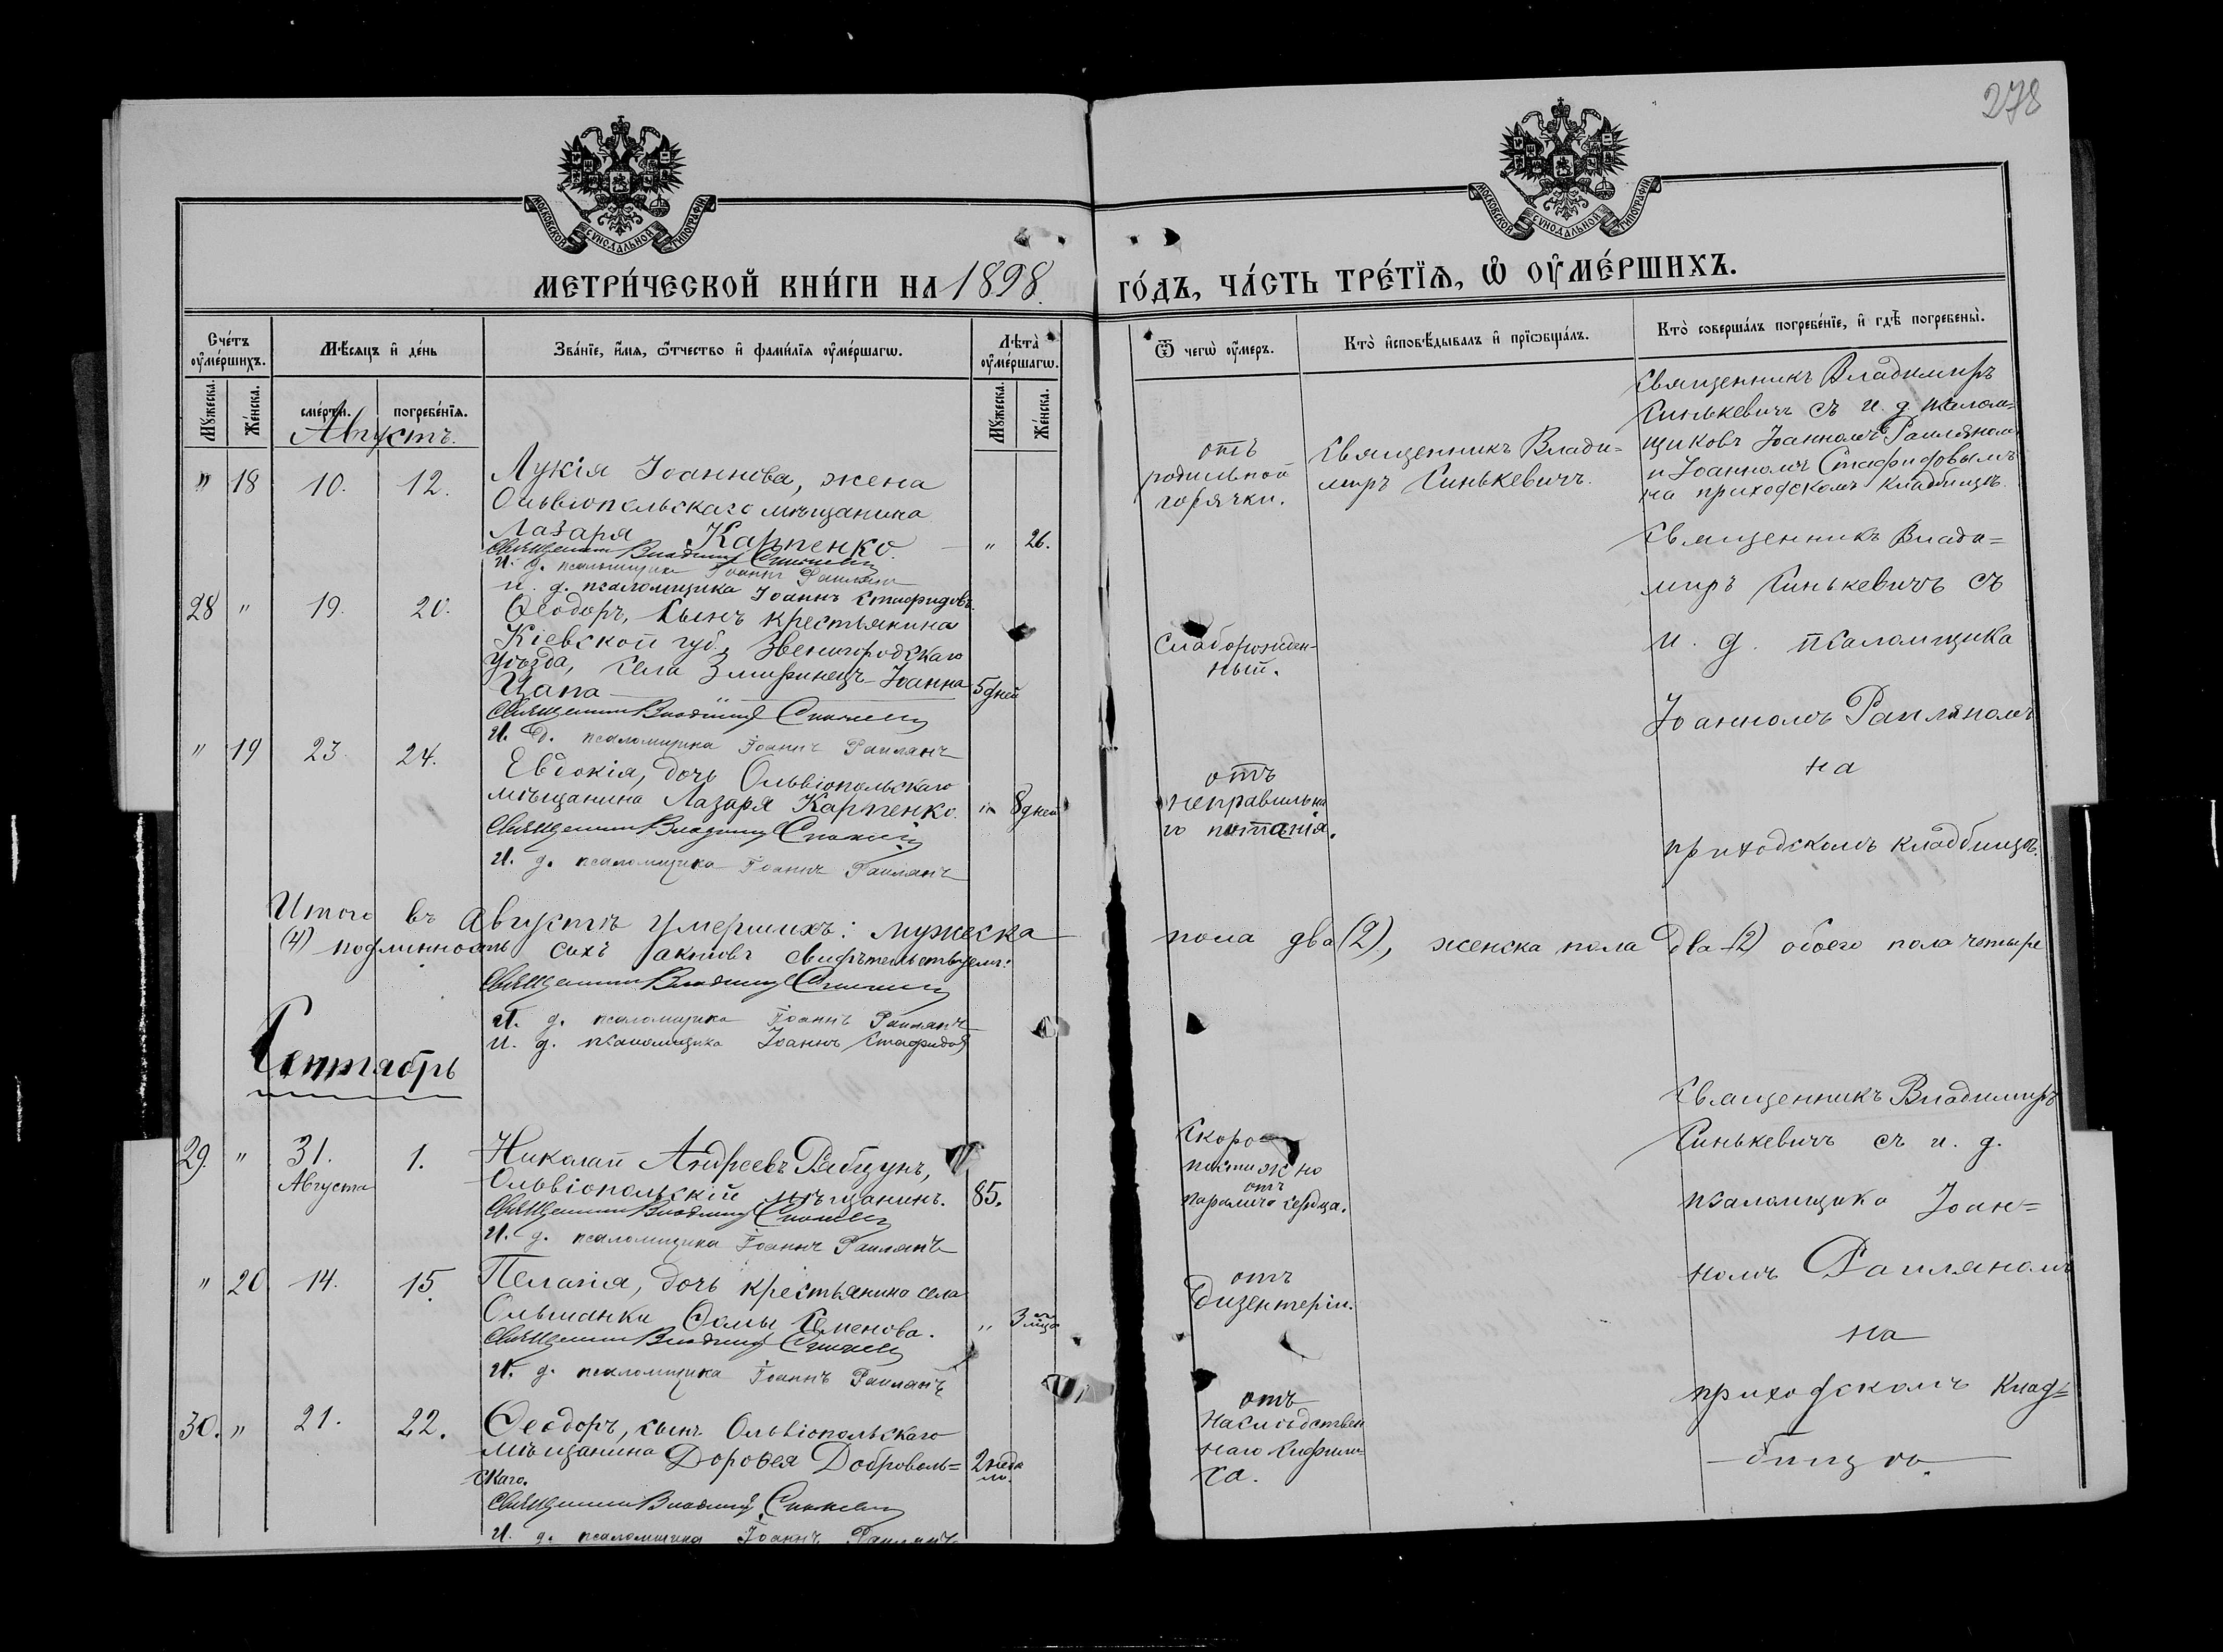 278
МОСКОВСКОЙ СУНОДАЛЬНОЙ ТИПОГРАФІИ
МОСКОВСКОЙ СУНОДАЛЬНОЙ ТИПОГРАФІИ
МЕТРИ́ЧЕСКОЙ КНИ́ГИ НА 1898.
ГО́ДЪ, ЧА́СТЬ ТРЕ́ТЇѦ, Ѡ҆ ОУ҆МЕ́РШИХЪ.
Сче́тъ оу҆ме́ршихъ.
Мꙋ́жеска.
Же́нска.
Мѣ́сяцъ и҆ де́нь
сме́рти.
погребе́нїя.
Зва́нїе, и҆́мя, ѻ҆́тчество и҆ фами́лїя оу҆ме́ршагѡ.
Лѣта̀ оу҆ме́ршагѡ.
Мꙋ́жеска.
Же́нска.
Ѿ чегѡ̀ оу҆́меръ.
Кто̀ и҆сповѣ́дывалъ и҆ прїѡбща́лъ.
Кто̀ соверша́лъ погребе́нїе, и҆ гдѣ̀ погребены̀.
Августъ.
" 18 10. 12.
Лукія Іоаннова, жена
Ольвіопольскаго мѣщанина
Лазаря Карпенко. " 26.
Священникъ Владимір Синькевич
И. д. псаломщика Іоаннъ Раилянъ
и. д. псаломщика Іоаннъ Стафидовъ
отъ
родильной
горячки.
Священникъ Влади=
міръ Синькевичъ.
Священникъ Владиміръ
Синькевичъ съ и. д. псалом=
щиковъ Іоанномъ Раиляномъ
и Іоанномъ Стафидовымъ
на приходскомъ кладбищѣ.
28 " 19. 20.
Ѳеодоръ, сынъ крестьянина
Кіевской губ., Звенигородскаго
уѣзда, села Змиринецъ Іоанна
Цапа 5 дней
Священникъ Владимір Синькевич
И. д. псаломщика Іоаннъ Раилянъ
Слаборожден-
ный.
Священникъ Влади=
міръ Синькевичъ съ
и. д. псаломщика
Іоанномъ Раиляномъ
на
приходскомъ кладбищѣ.
" 19 23. 24.
Евдокія, дочь Ольвіопольскаго
мѣщанина Лазаря Карпенко. " 8 дней
Священникъ Владимір Синькевич
И. д. псаломщика Іоаннъ Раилянъ
отъ
неправильна
го питанія.
Итого въ Августѣ умершихъ: мужеска
пола два (2), женска пола два (2) обоего пола четыре
(4) подлинность сихъ актовъ свидѣтельствуемъ:
Священникъ Владимір Синькевич
И. д. псаломщика Іоаннъ Раилянъ
И. д. псаломщика Іоаннъ Стафидов
Сентябрь
29. " 31. 1.
Августа
Николай Андреевъ Рабцунъ,
Ольвіопольскій мѣщанинъ. 85.
Священникъ Владимір Синькевич
И. д. псаломщика Іоаннъ Раилянъ
Скоро
постижно
отъ
паралича сердца.
Священникъ Владиміръ
Синькевичъ съ и. д.
псаломщика Іоан=
номъ Раиляномъ
на
приходскомъ клад=
бищѣ.
" 20 14. 15.
Пелагія, дочь крестьянина села
Ольшанки Ѳомы Семенова. " 3 мѣца
Священникъ Владимір Синькевич
И. д. псаломщика Іоаннъ Раилянъ
отъ
дизентеріи.
30. " 21. 22.
Ѳеодоръ, сынъ Ольвіопольскаго
мѣщанина Дороѳея Доброволь=
скаго.
Священникъ Владимір Синькевич
И. д. псаломщика Іоаннъ Раилянъ
отъ
наслѣдствен
наго сифили-
са.